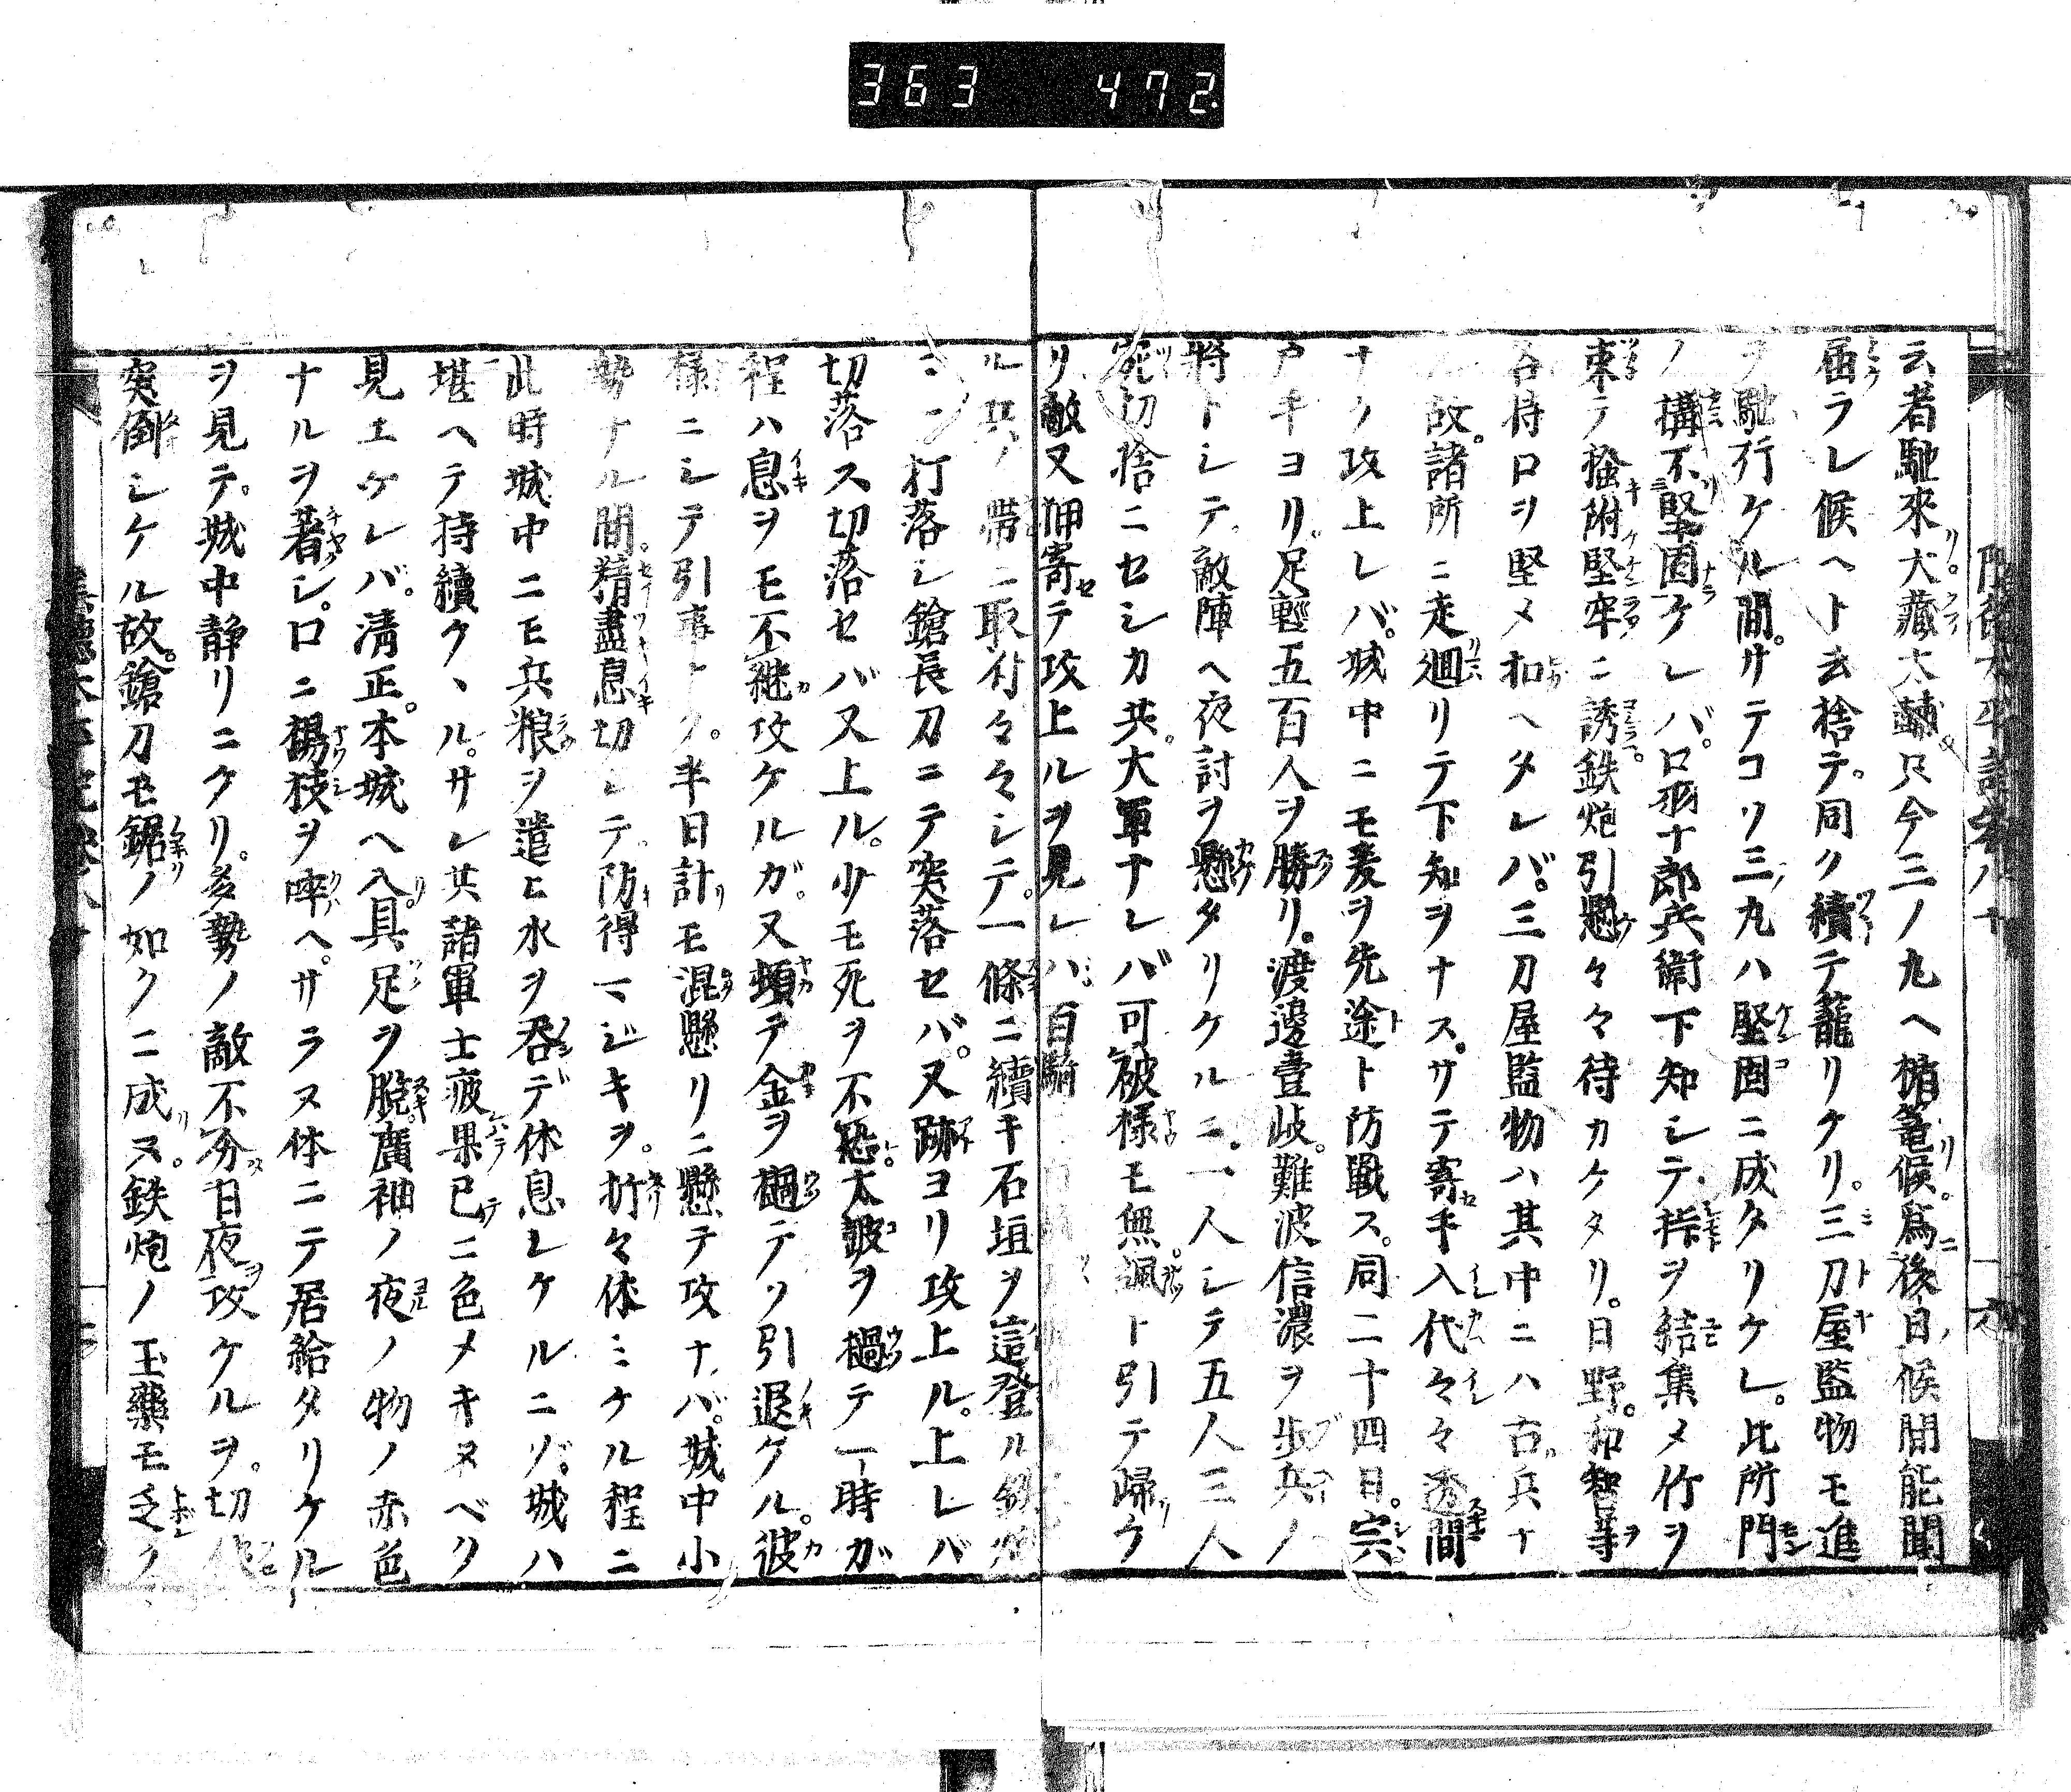 363 472
云者馳來リ。大藏太輔只今三ノ丸ヘ楯篭リ候。爲後日ノ候間能聞
届ラレ候ヘト云捨テ。同ク續テ籠リケリ。三刀屋監物モ進
ヲ馳行ケル間。サテコソ三ノ丸ハ堅固ニ成タリケレ。此所門
ノ構不堅固ケレバ。口羽十郎兵衛下知シテ。柹ヲ結集メ竹ヲ
束テ掻附堅牢ニ誘。鉄炮引懸ケ々々待カケタリ。日野。和智等ヲ
各持口ヲ堅メ扣ヘタレバ。三刀屋監物ハ其中ニハ古兵ナ
故。諸所ニ走リ廻リテ下知ヲナス。サテ寄セ手入代々々透間
ナク攻上レバ。城中ニモ爰ヲ先途ト防戰ス。同二十四日。宍
戸手ヨリ。足輕五百人ヲ勝リ。渡邊壹岐。難波信濃ヲ歩兵ノ
將トシテ。敵陣ヘ夜討ヲ懸タリケルニ。一人シテ五人三人
宛切捨ニセシカ共。大軍ナレバ可被樣モ無。颯ト引テ歸リケ
リ敵又押寄セテ攻上ルヲ見レハ。
ル兵ノ帶ニ取付々々シテ。一條ニ續キ石垣ヲ這登ル
ニ打落シ鎗長刀ニテ突落セバ。又跡ヨリ攻上ル。上レバ
切落ス切落セバ又上ル。少モ死ヲ不恐。太皷ヲ撾テ一時ガ
程ハ息ヲモ不継攻ケルガ。又頓テ金ヲ撾テソ引退ケル。彼
樣ニシテ引事ナク。半日計モ混懸リニ懸テ攻ナバ。城中小
勢ナル間。精盡息切レテ。防キ得マジキヲ。折々休ミケル程ニ
此時城中ニモ兵粮ヲ遣ヒ水ヲ呑デ休息シケルニゾ。城ハ
堪ヘテ持續クヽル。サレ共諸軍士疲果已ニ色メキヌベク
見エケレバ。清正。本城ヘ入リ。具足ヲ脱。廣袖ノ夜ノ物ノ赤色
ナルヲ著シ。口ニ楊枝ヲ啣ヘ。サラヌ体ニテ居給タリケル
ヲ見テ。城中静リニケリ。多勢ノ敵不分日夜ヲ攻ケルヲ。切
突倒シケル故。鎗刀モ鋸ノ如クニ成リヌ。鉄炮ノ玉藥モ乏ク